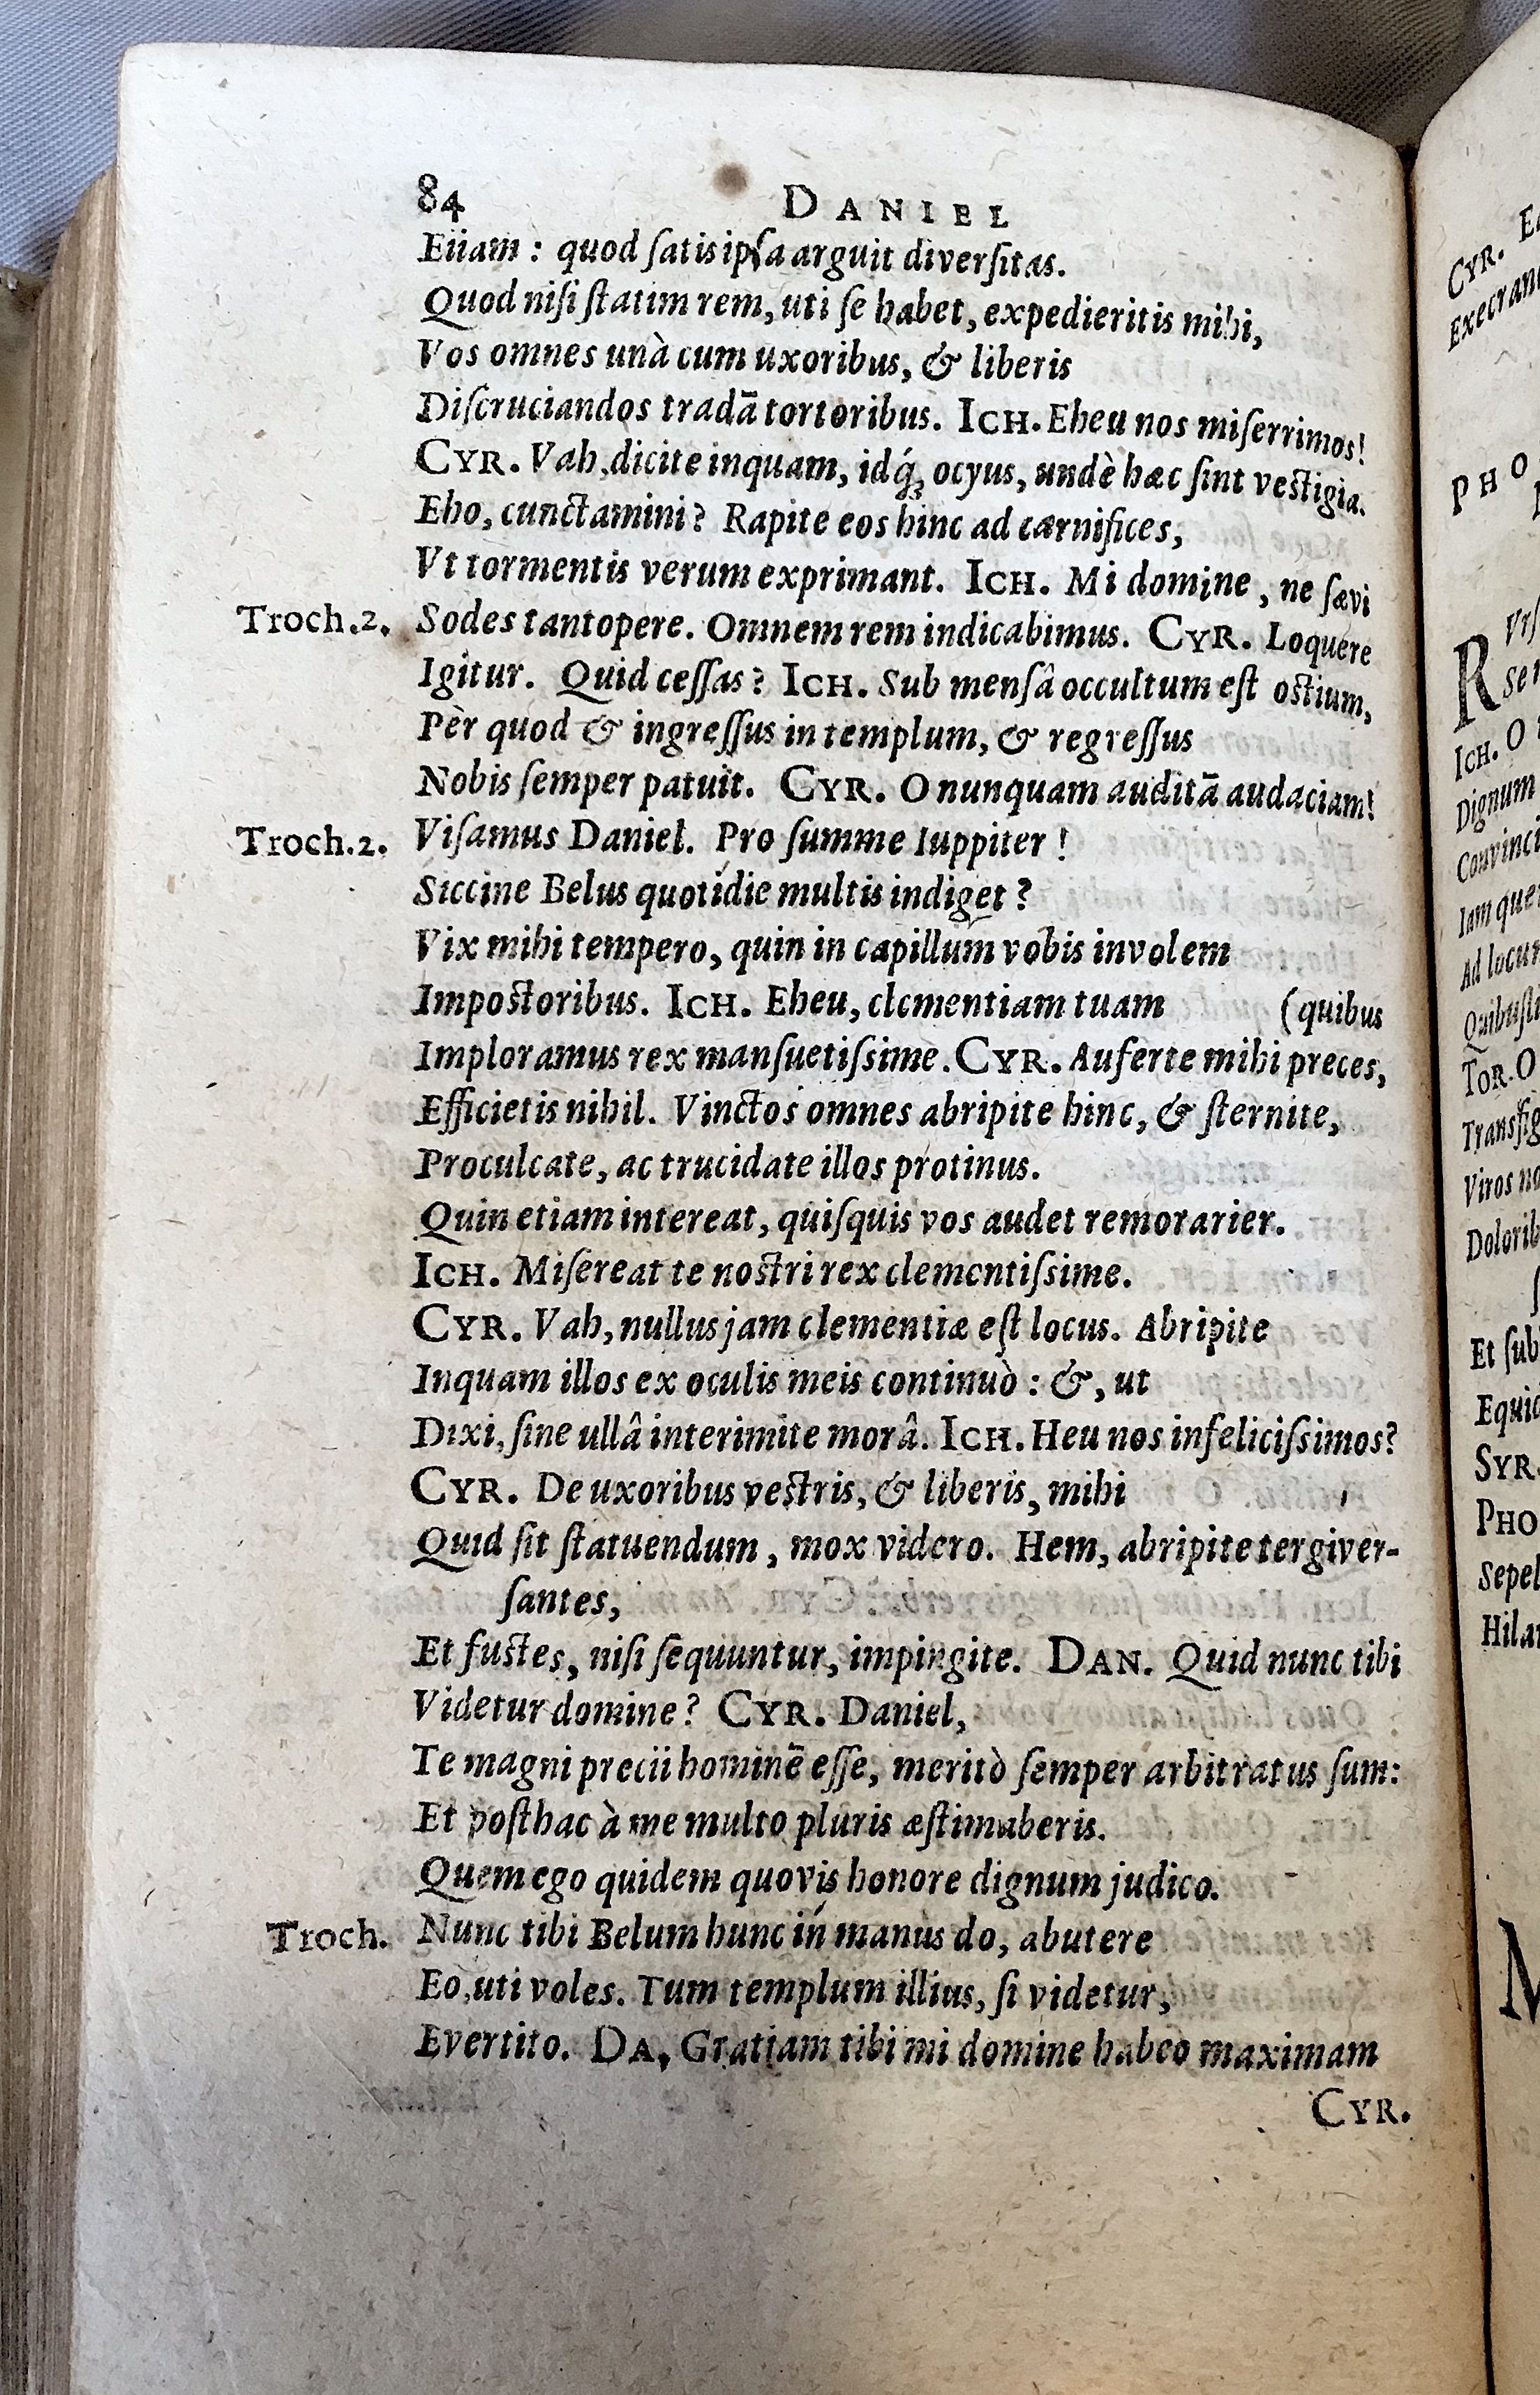 84 DANIEL
Etiam : quod ſatis ipſa arguit diverſitas.
Quod niſi ſtatim rem, uti ſe habet, expedieritis mihi,
Vos omnes unà cum uxoribus, & liberis
Diſcruciandos tradā tortoribus. ICH. Eheu nos miſerrimos!
CYR. Vah, dicite inquam, idq́; ocyus, undè hæc ſint veſtigia.
Eho, cunctamini? Rapite eos hinc ad carnifices,
Vt tormentis verum exprimant. ICH. Mi domine, ne ſævi
Troch.2. Sodes tantopere. Omnem rem indicabimus. CYR. Loquere
Igitur. Quid ceſſas? ICH. Sub menſâ occultum eſt oſtium,
Pèr quod & ingreſſus in templum, & regreſſus
Nobis ſemper patuit. CYR. O nunquam auditā audaciam!
Troch.2. Viſamus Daniel. Pro ſumme Iuppiter!
Siccine Belus quotidie multis indiget?
Vix mihi tempero, quin in capillum vobis involem
Impoſtoribus. ICH. Eheu, clementiam tuam (quibus
Imploramus rex manſuetiſsime. CYR. Auferte mihi preces,
Efficietis nihil. Vinctos omnes abripite hinc, & ſternite,
Proculcate, ac trucidate illos protinus.
Quin etiam intereat, quiſquis vos audet remorarier.
ICH. Miſereat te noſtri rex clementiſsime.
CYR. Vah, nullus jam clementiæ eſt locus. Abripite
Inquam illos ex oculis meis continuò : &, ut
Dixi, ſine ullâ interimite morâ. ICH. Heu nos infeliciſsimos?
CYR. De uxoribus veſtris, & liberis, mihi
Quid ſit ſtatuendum, mox videro. Hem, abripite tergiver-
ſantes,
Et fuſtes, niſi ſequuntur, impingite. DAN. Quid nunc tibi
Videtur domine? CYR. Daniel,
Te magni precii hominē eſſe, meritò ſemper arbitratus ſum:
Et poſthac à me multo pluris æſtimaberis.
Quem ego quidem quovis honore dignum judico.
Troch. Nunc tibi Belum hunc in manus do, abutere
Eo, uti voles. Tum templum illius, ſi videtur,
Evertito. DA. Gratiam tibi mi domine habeo maximam
CYR.
CYR.
PHO
R
ICH. O
Dignum
Ad locum
TOR. O
Viros
Et ſub
SYR.
PHO
M